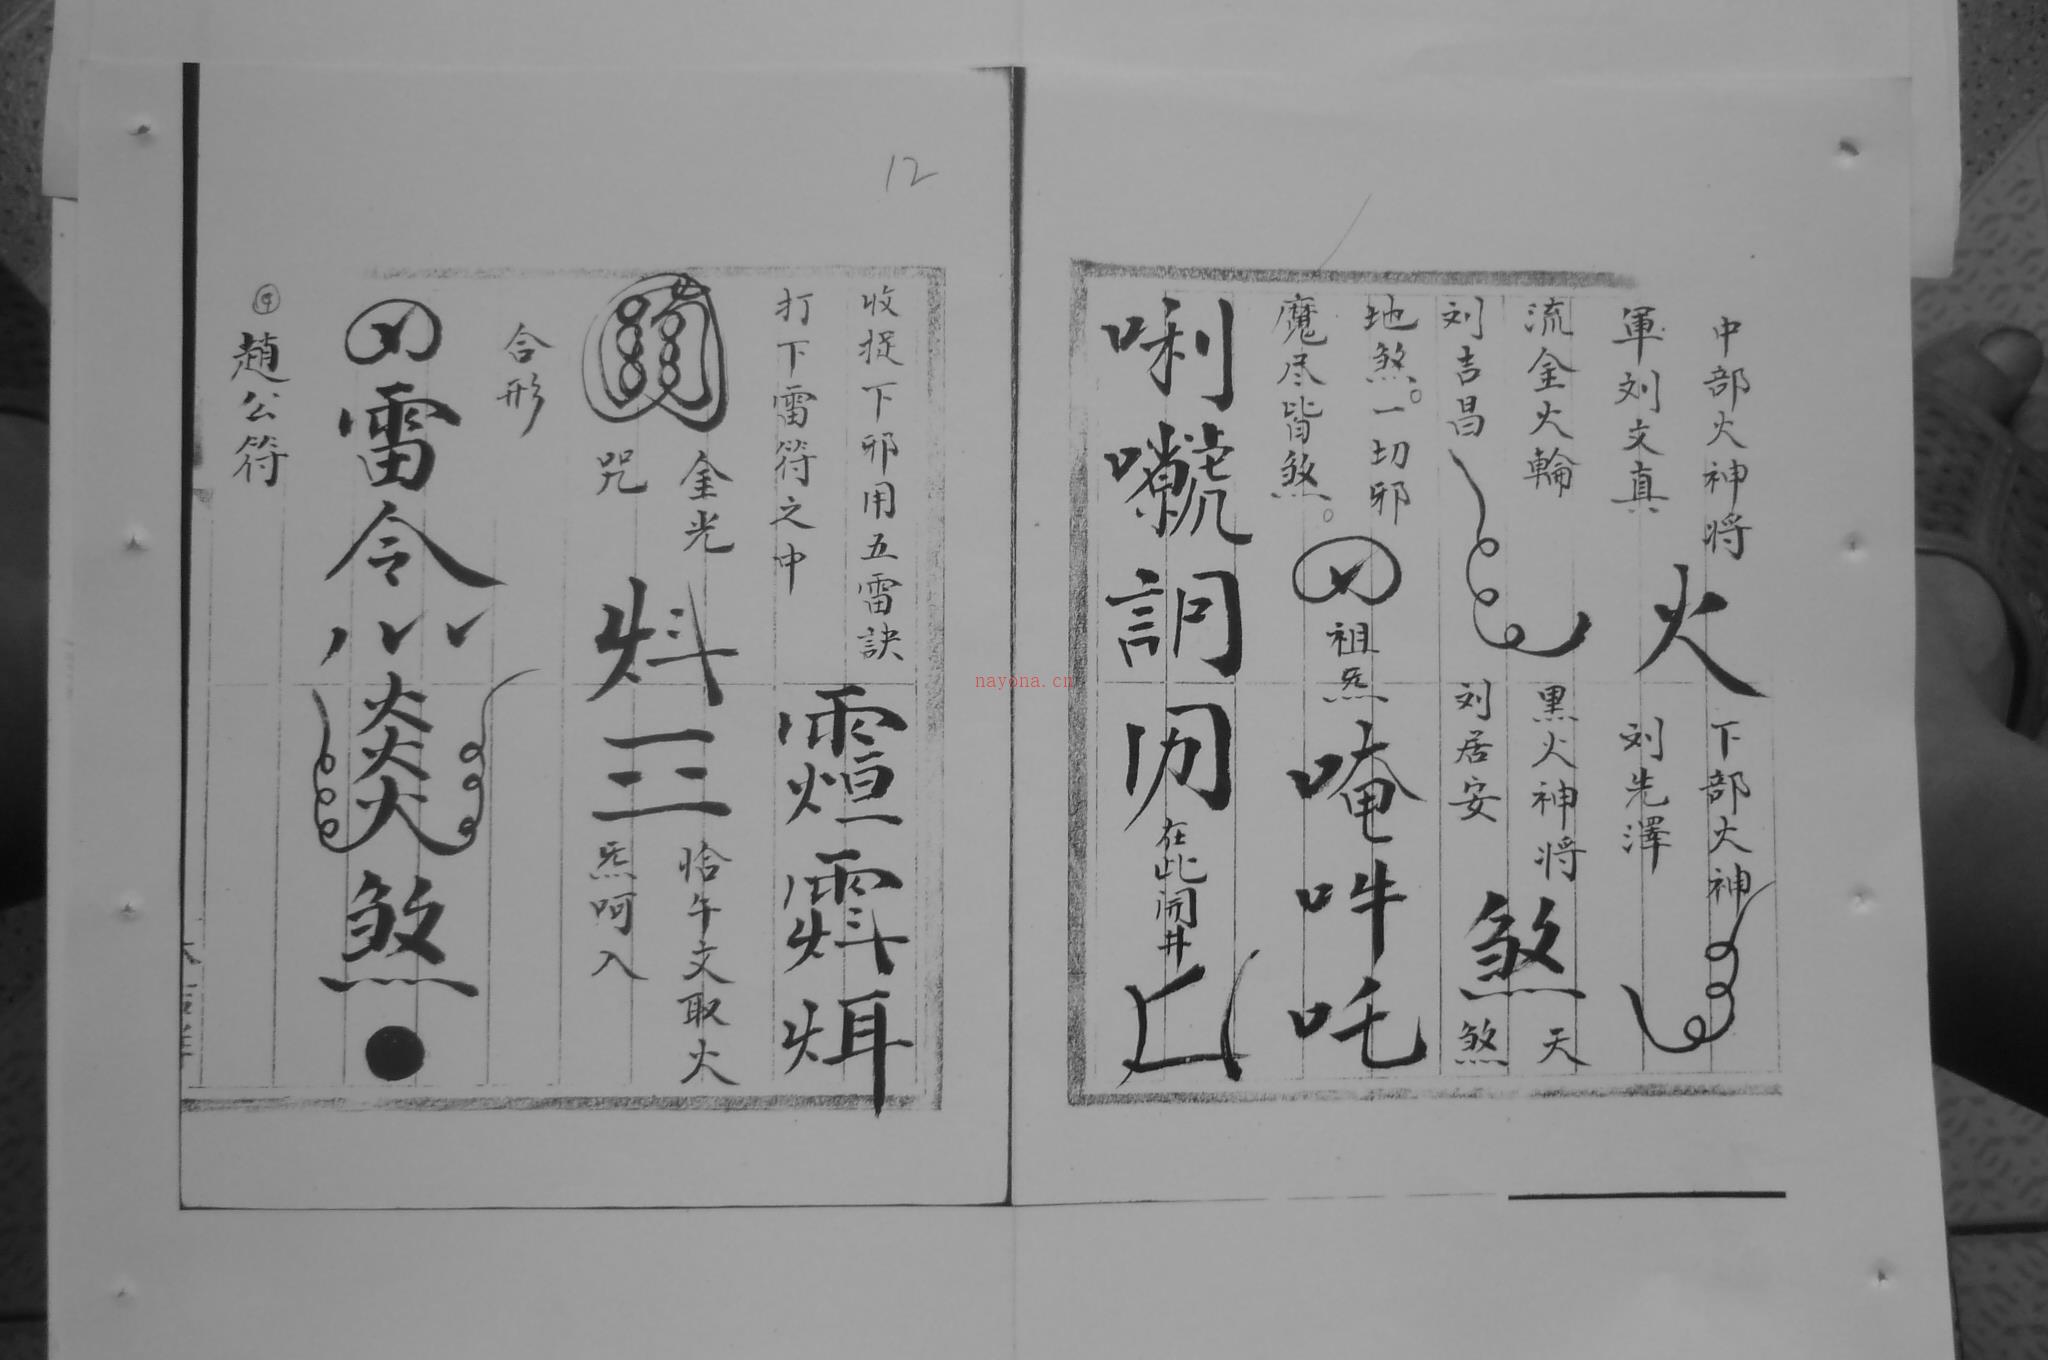 中部火神将
軍刘文真
火
下部火神
刘先澤
流金火輪
刘吉昌
黒火神将
刘居安
煞
天
煞
地煞。一切邪
魔尽皆煞。
祖炁
唵吽吒
唎
在此開井
12
收捉下邪用五雷訣
打下雷符之中
金光
咒
恰午文取火
炁呵入
合形
雷令
煞
④趙公符
nayona.cn